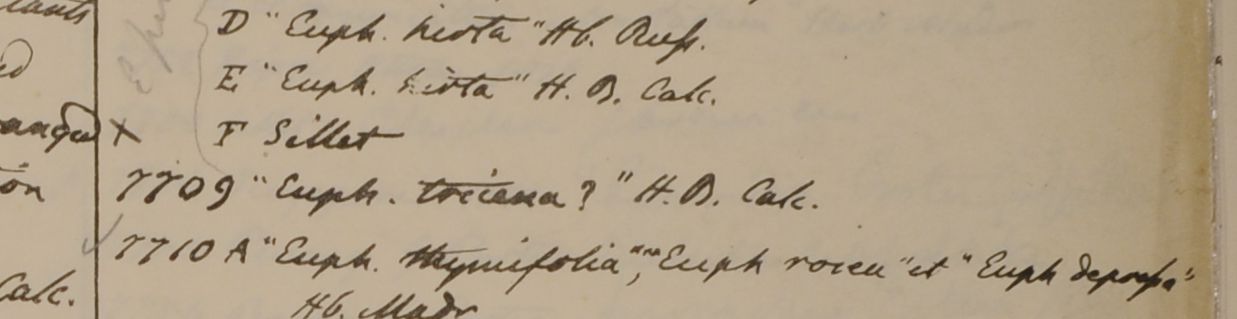 D "Euph. hirta" Hb. Russ.
E "Euph. hirta" H. B. Calc.
F Sillet
on
7709 "Euph. ? " H. B. Calc.
7710 A "Euph. thymifolia", "Euph rosea" et "Euph depressa"
Calc.
Hb. Madr